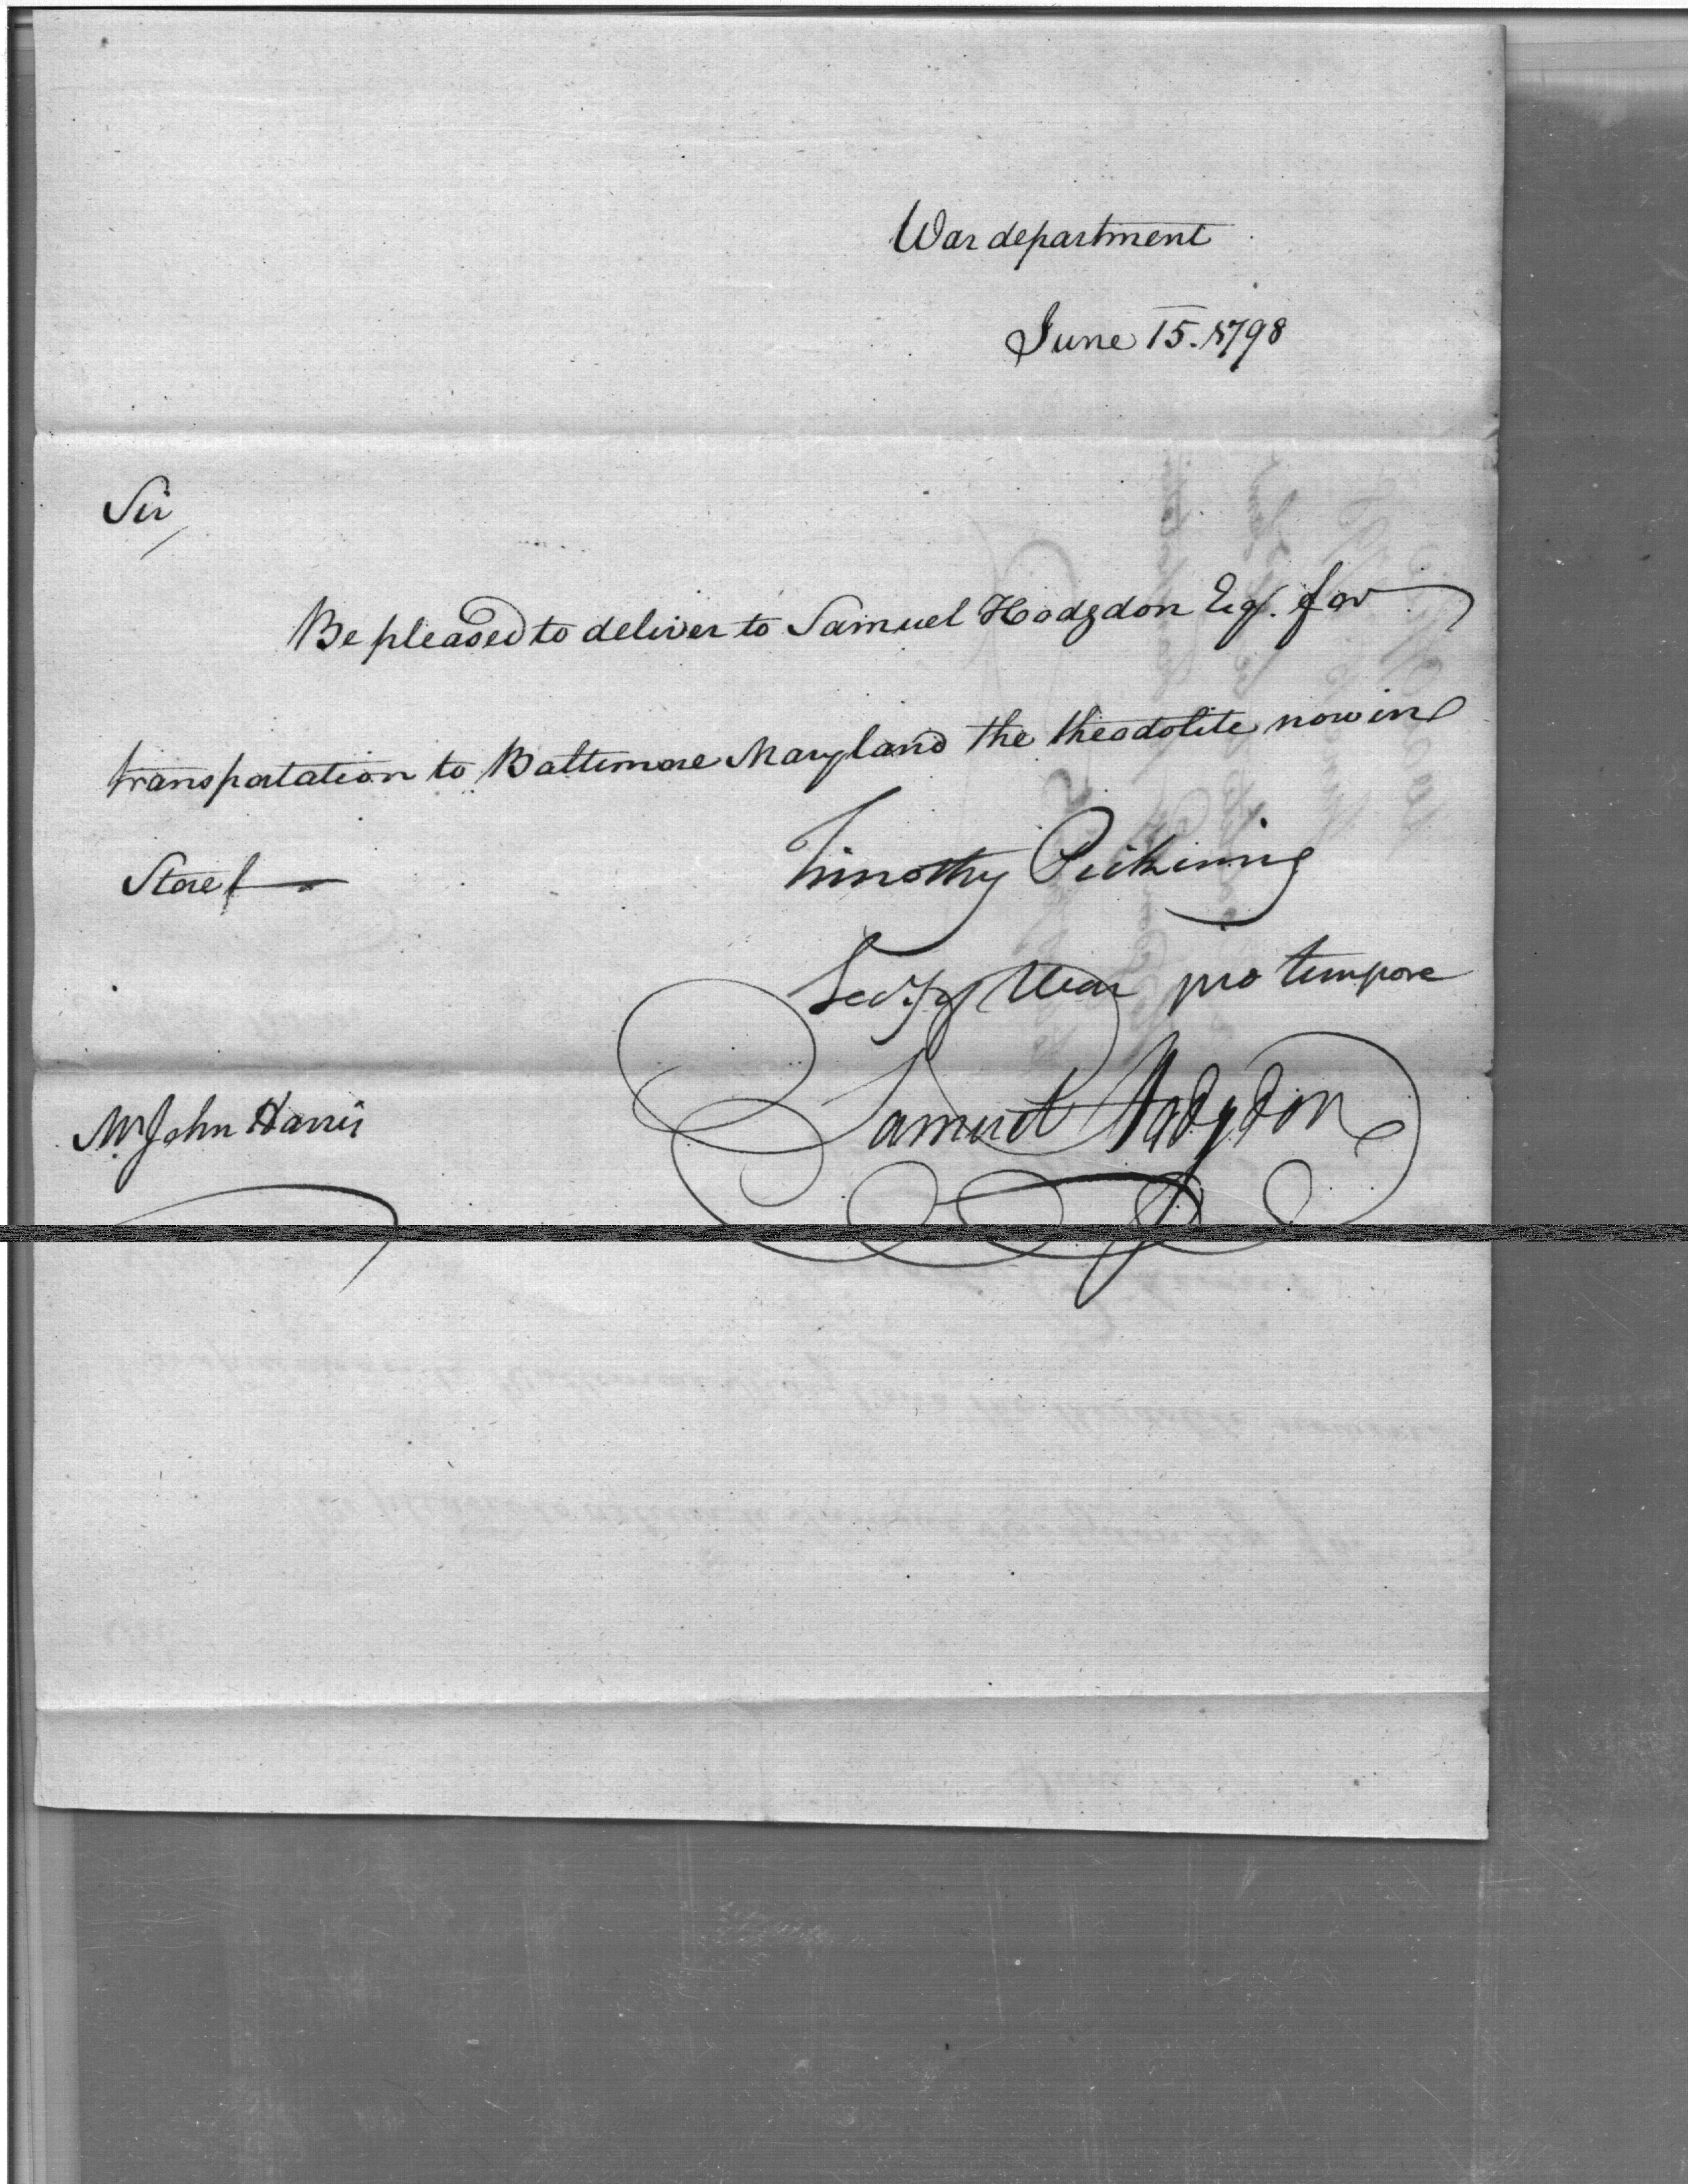 War department
June 15. 1798
Sir
Be pleased to deliver to Samuel Hodgdon Esq. for
transportation to Baltimore Maryland the theodolite now in
Store
Timothy Pickering
Secy. of War pro tempore
Samuel Hodgdon
Mr John Harris